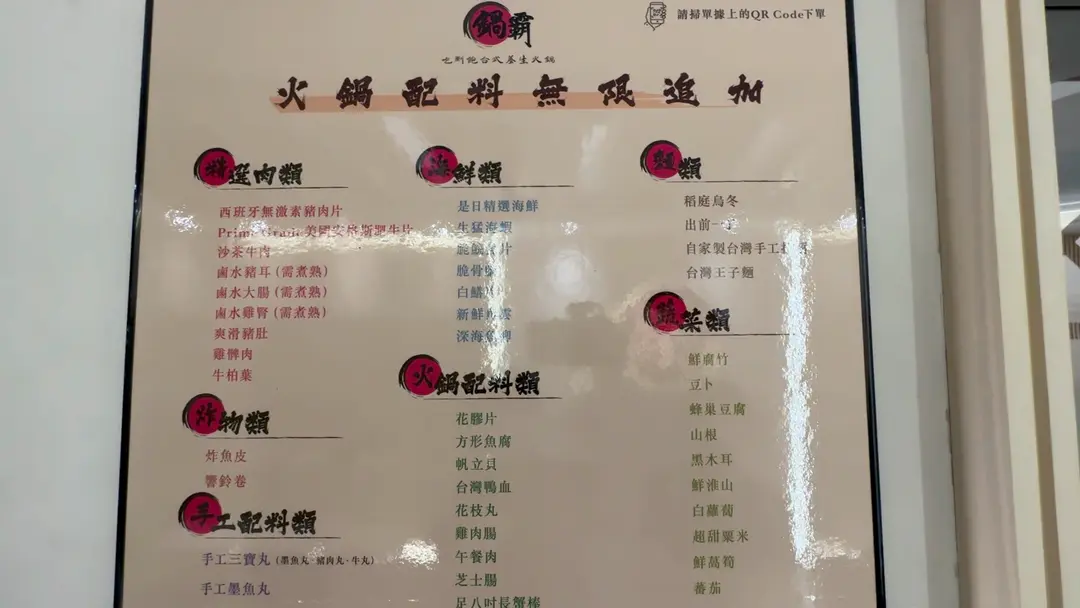 鍋霸
吃到飽台式養生火鍋
請掃單據上的QR Code下單
火鍋配料無限追加
精選肉類
西班牙無激素豬肉片
Prime Grade美國安格斯肥牛片
沙茶牛肉
鹵水豬耳(需煮熟)
鹵水大腸(需煮熟)
鹵水雞腎(需煮熟)
爽滑豬肚
雞髀肉
牛柏葉
炸物類
炸魚皮
響鈴卷
手工配料類
手工三寶丸(墨魚丸·豬肉丸·牛丸)
手工墨魚丸
海鮮類
是日精選海鮮
生猛海蝦
脆鯇魚片
脆骨
白鱔
新鮮
深海魚
火鍋配料類
花膠片
方形魚腐
帆立貝
台灣鴨血
花枝丸
雞肉腸
午餐肉
芝士腸
足八吋長蟹棒
麵類
稻庭烏冬
出前一丁
自家製台灣手工
台灣王子麵
蔬菜類
鮮腐竹
豆卜
蜂巢豆腐
山根
黑木耳
鮮淮山
白蘿蔔
超甜粟米
鮮萵筍
蕃茄